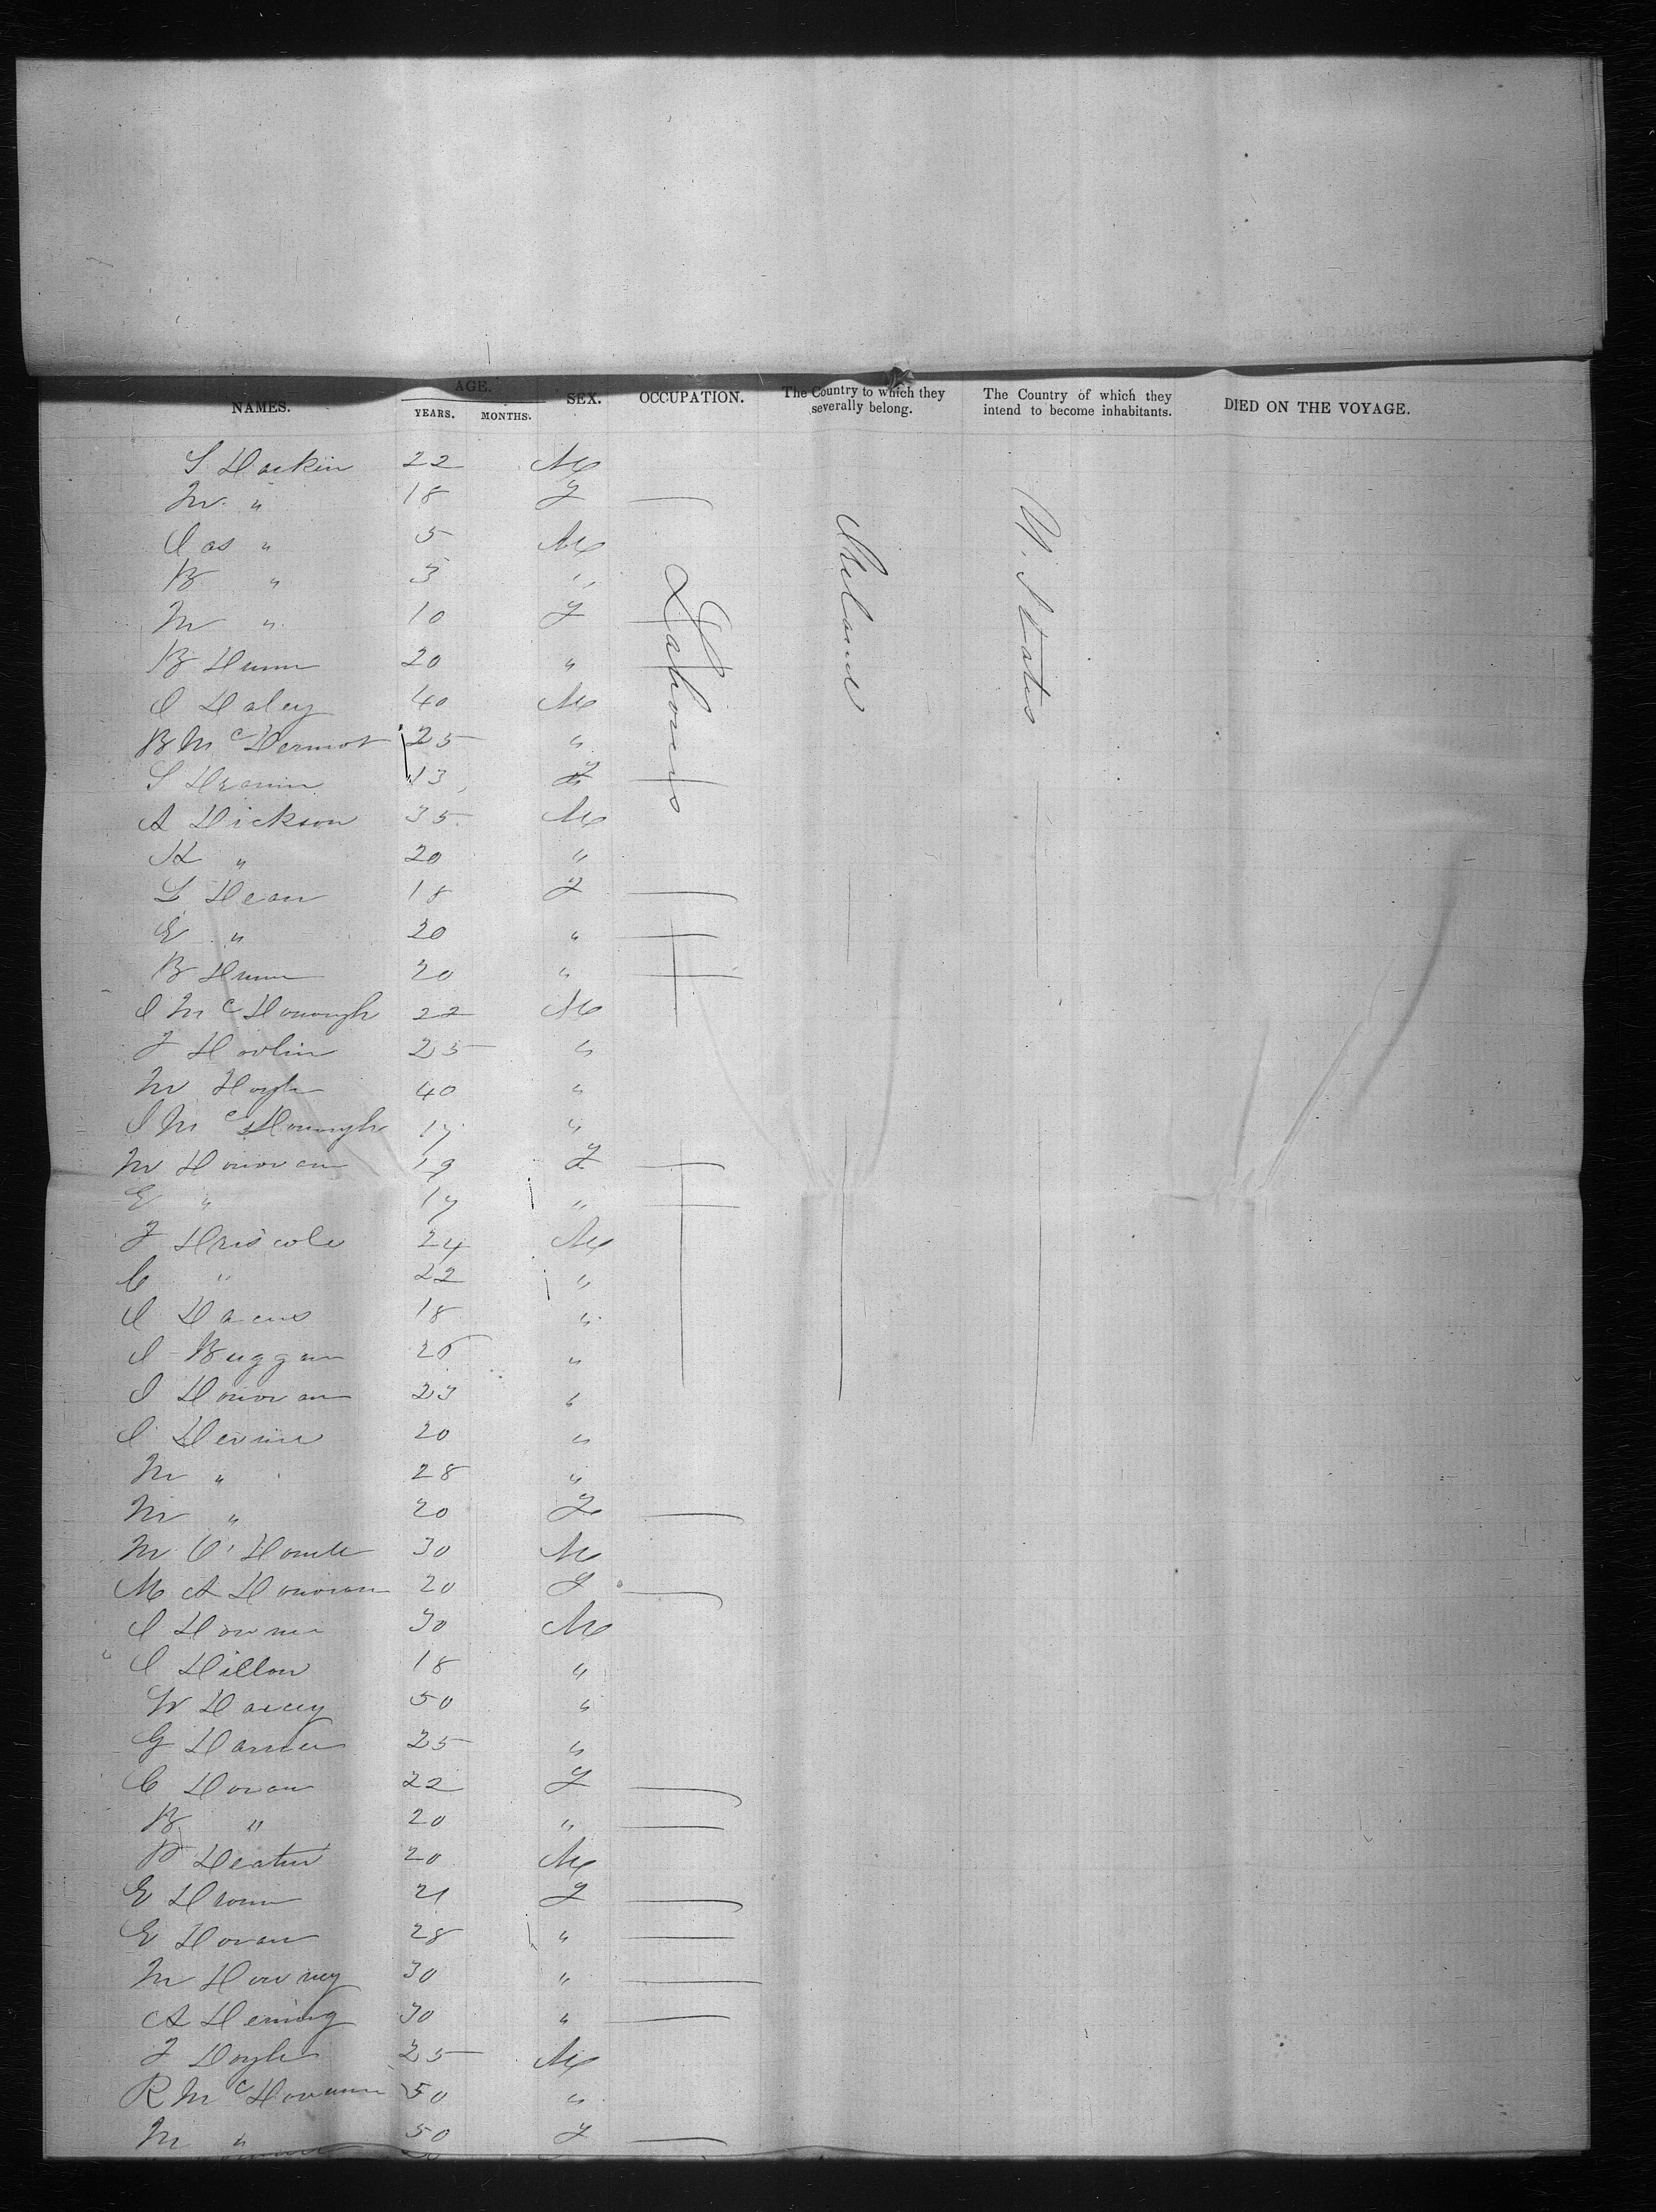 NAMES. AGE. YEARS. MONTHS. SEX. OCCUPATION. The Country to which they severally belong. The Country of which they intend to become inhabitants. DIED ON THE VOYAGE.
S Dackin 22 M
M " 18 F —
Jas " 5 M
B " 3 "
M " 10 F
B Dunn 20 "
J Daley 40 M
B McDermot 25 "
S 13 F
A Dickson 35 M
K " 20 "
L Dean 18 F —
E " 20 " —
B Dunn 20 " —
J McDonough 22 M
F Dovlin 25 "
M Doyle 40 "
J McDonough 17 "
M Donovan 19 F —
E " 17 " —
F Driscole 24 M
C " 22 "
J 18 "
J Buggan 26 "
J Donovan 23 "
J Devine 20 "
M " 28 "
M " 20 F —
M O' 30 M
M A Donovan 20 F —
J 30 M
J Dillon 18 "
W Darcey 50 "
G 25 "
C Doran 22 F —
B " 20 " —
P 20 M
E 21 F —
E Doran 28 " —
M Downey 30 " —
A Dening 30 " —
F Doyle 25 M
R Mc 50 "
M " 50 F —
Labourers
Ireland
U. States